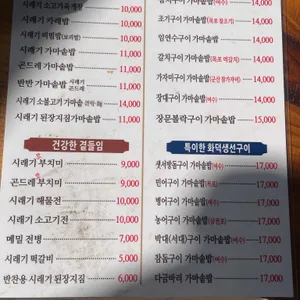 시래기 소고기육개장 10,000
시래기 카레밥 10,000
시래기 비빔밥(보리밥) 10,000
시래기 가마솥밥 11,000
곤드레 가마솥밥 11,000
반반 가마솥밥 시래기 곤드레 11,000
시래기 소불고기 가마솥 14,000
시래기 된장지짐가마솥밥 11,000
건강한 곁들임
시래기 부치미 9,000
곤드레 부치미 9,000
시래기 해물전 10,000
시래기 소고기전 10,000
메밀 전병 7,000
시래기 떡갈비 5,000
반찬용 시래기 된장지짐 6,000
가마솥밥(여수) 14,000
조기구이 가마솥밥(목포 참조기) 14,000
임연수구이 가마솥밥 14,000
갈치구이 가마솥밥(목포 먹갈치) 14,000
가자미구이 가마솥밥(군산 참가자미) 14,000
장대구이 가마솥밥(여수) 14,000
장문볼락구이 가마솥밥(여수) 15,000
특이한 화덕생선구이
샛서방돔구이 가마솥밥(여수) 17,000
민어구이 가마솥밥(목포) 17,000
병어구이 가마솥밥(여수) 17,000
농어구이 가마솥밥(삼천포) 17,000
박대(서대)구이 가마솥밥(여수) 17,000
참돔구이 가마솥밥(여수) 17,000
다금바리 가마솥밥 17,000